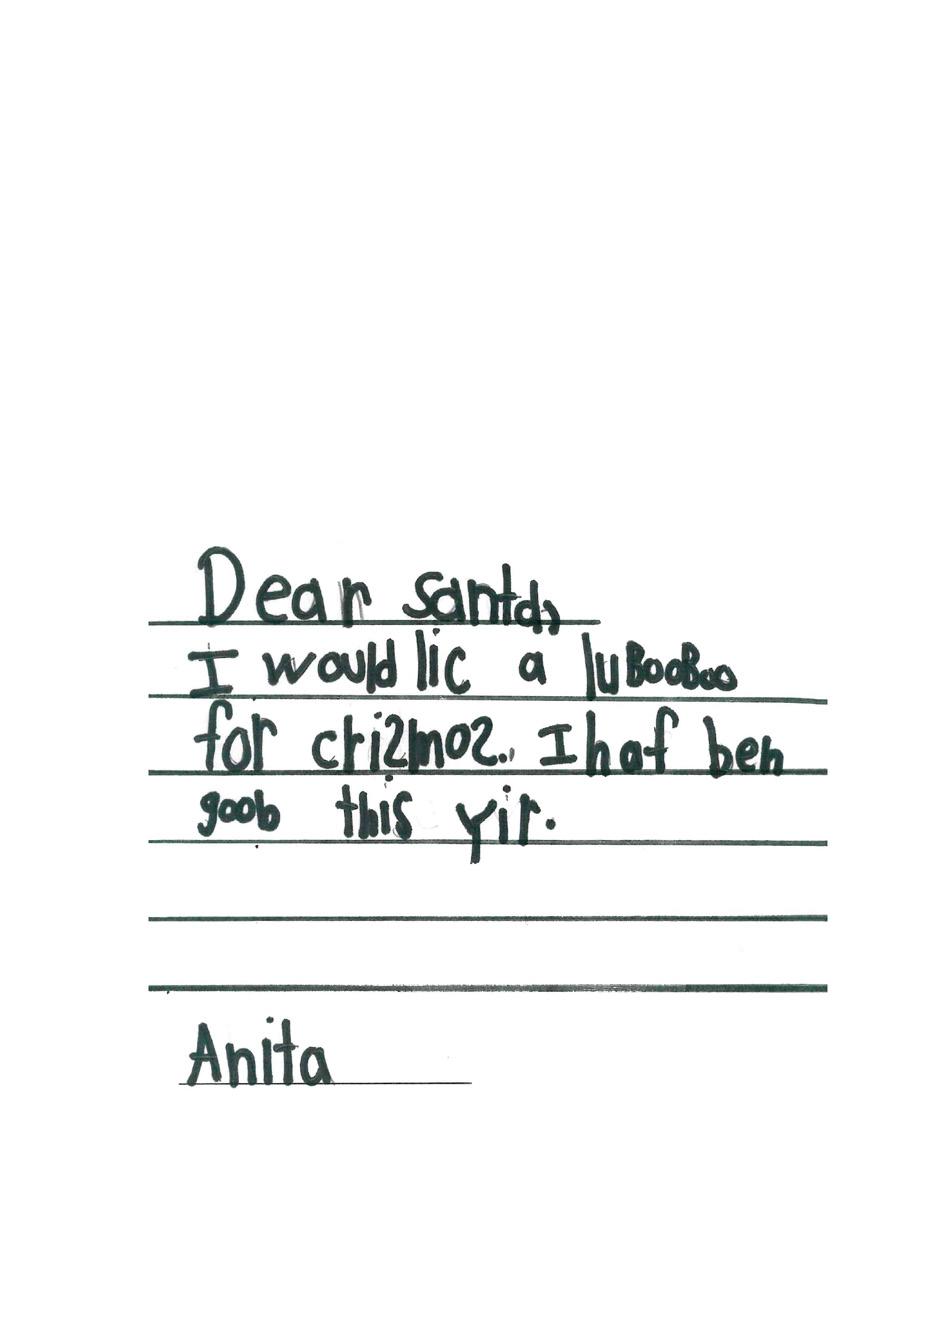 Dear santa,
I would lic a luBooBoo
for crismos. I haf ben
goob this yir.
Anita